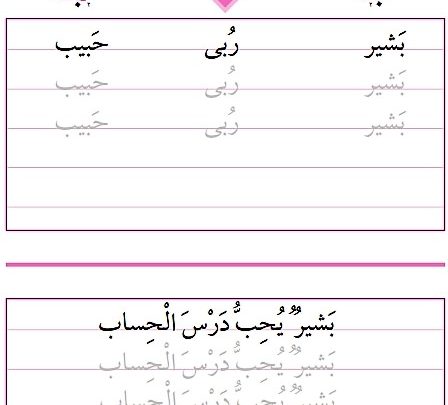 بَشير رُبى حَبيب
بَشير رُبى حَبيب
بَشير رُبى حَبيب
بَشيرٌ يُحِبُّ دَرْسَ الْحِساب
بَشيرٌ يُحِبُّ دَرْسَ الْحِساب
بَشيرٌ يُحِبُّ دَرْسَ الْحِساب